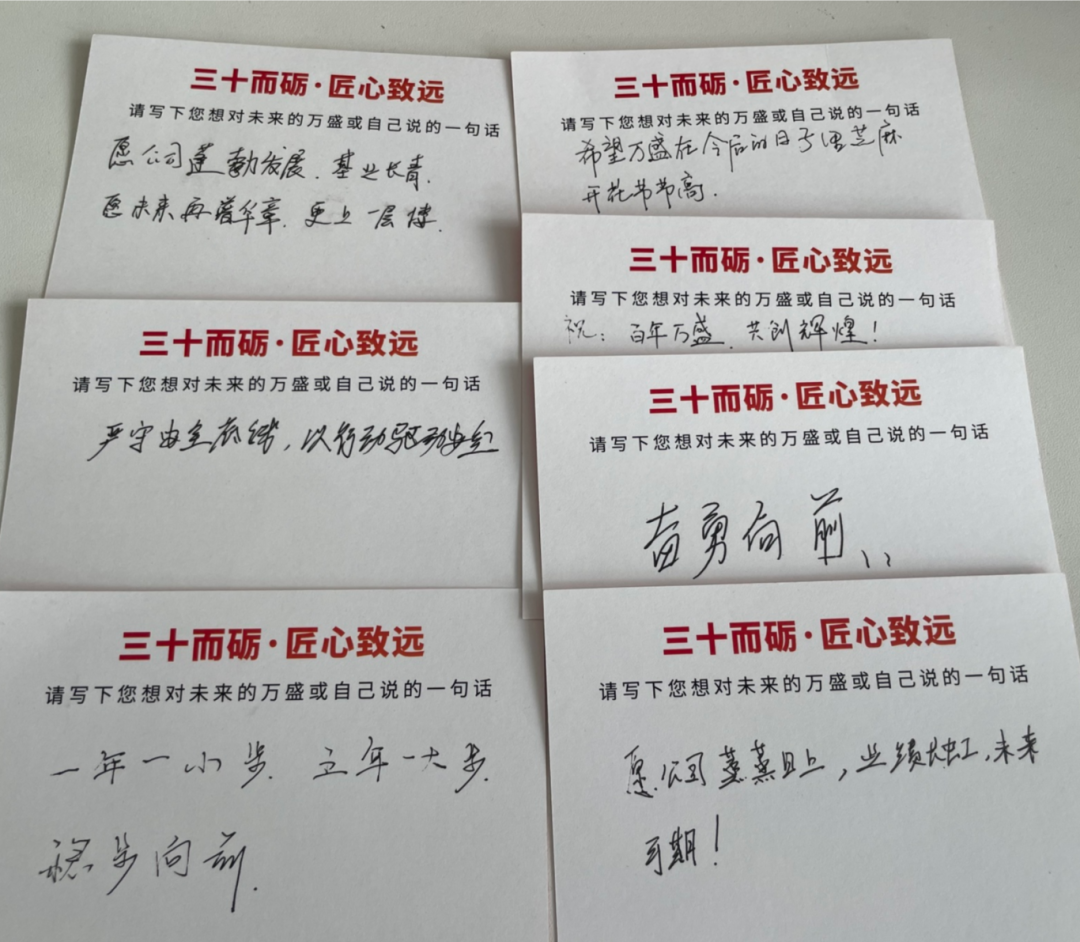 三十而砺·匠心致远
请写下您想对未来的万盛或自己说的一句话
愿公司蓬勃发展、基业长青.
愿未来再谱华章、更上一层楼.
三十而砺·匠心致远
请写下您想对未来的万盛或自己说的一句话
希望万盛在今后的日子里芝麻
开花节节高.
三十而砺·匠心致远
请写下您想对未来的万盛或自己说的一句话
祝：百年万盛、共创辉煌！
三十而砺·匠心致远
请写下您想对未来的万盛或自己说的一句话
严守安全底线，以行动驱动安全
三十而砺·匠心致远
请写下您想对未来的万盛或自己说的一句话
奋勇向前
三十而砺·匠心致远
请写下您想对未来的万盛或自己说的一句话
一年一小步、三年一大步.
稳步向前.
三十而砺·匠心致远
请写下您想对未来的万盛或自己说的一句话
愿公司蒸蒸日上，业绩长虹，未来
可期！